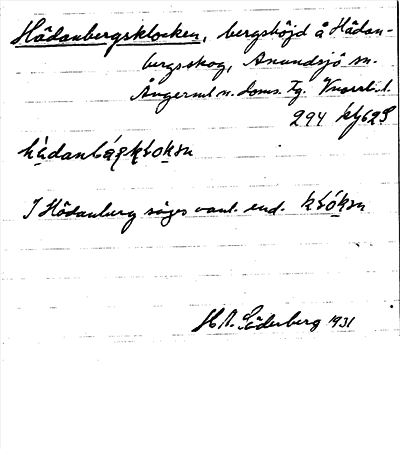 Hädanbergsklocken, bergshöjd å Hädan-
bergsskog, Anundsjö sn.
Ångerml. n. doms. tg. Västerb. l.
294
hädanbärsklokːn
I Hädanberg säges vanl. end. klokːn
H. A. Söderberg 1931